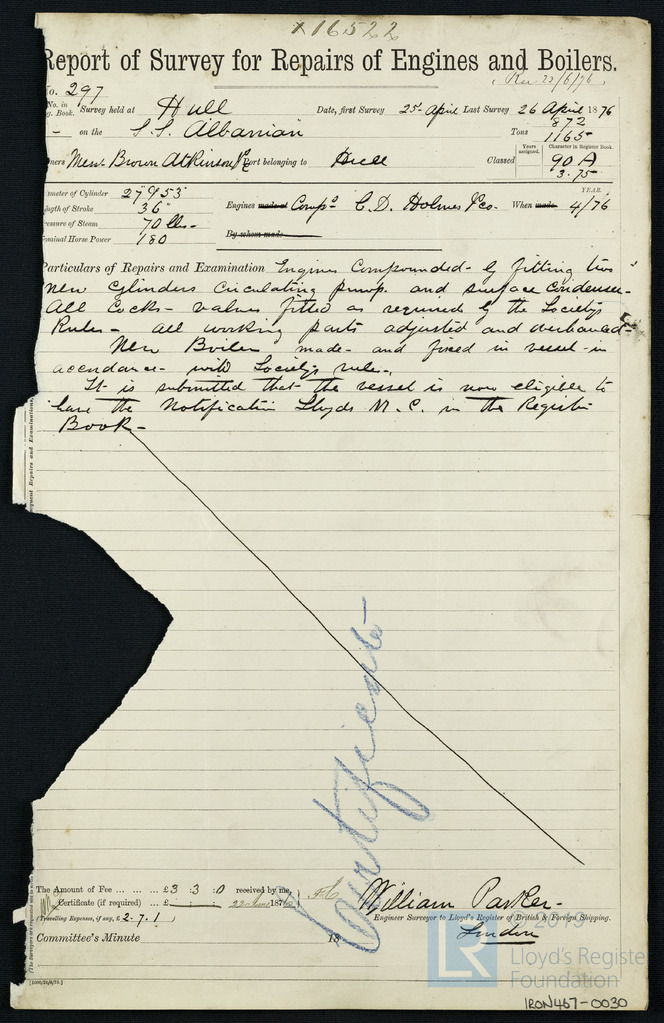 x 16522
Report of Survey for Repairs of Engines and Boilers.
Rec 22/6/76
No. 297
No. in Reg. Book. Survey held at Hull Date, first Survey 25th April Last Survey 26 April 1876
872
- on the S.S. Albanian Tons 1165
Years assigned. Character in Register Book.
Owners Messrs. Brown Atkinson & Co Port belonging to Hull Classed 90 A
3.75
YEAR.
Diameter of Cylinder 27 & 53
Length of Stroke 36" Engines made at Compd C. D. Holmes & Co. When made 4/76
Pressure of Steam 70 lbs-
Nominal Horse Power 180 By whom made
Particulars of Repairs and Examination Engines Compounded- by fitting two
new Cylinders Circulating pump. and surface Condenser-
All Cocks- valves fitted as required by the Society's
Rules- All working parts adjusted and overhauled-
New Boiler made- and fixed in vessel- in
accordance- with Society's rules-.
It is submitted that the vessel is now eligible to
have the Notification Lloyds M. C. in the Register
Book-
Subsequent Repairs and Examinations
Certificate
The Amount of Fee ... ... ... £ 3 : 3 : 0 received by me,
Certificate (if required) ... £ : : 22 June 1876
(Travelling Expenses, if any, £ 2 . 7 . 1 )
William Parker-
Engineer Surveyor to Lloyd's Register of British & Foreign Shipping.
London
Committee's Minute 18
© 2019
LR
Lloyd's Register
Foundation
IRON467-0030